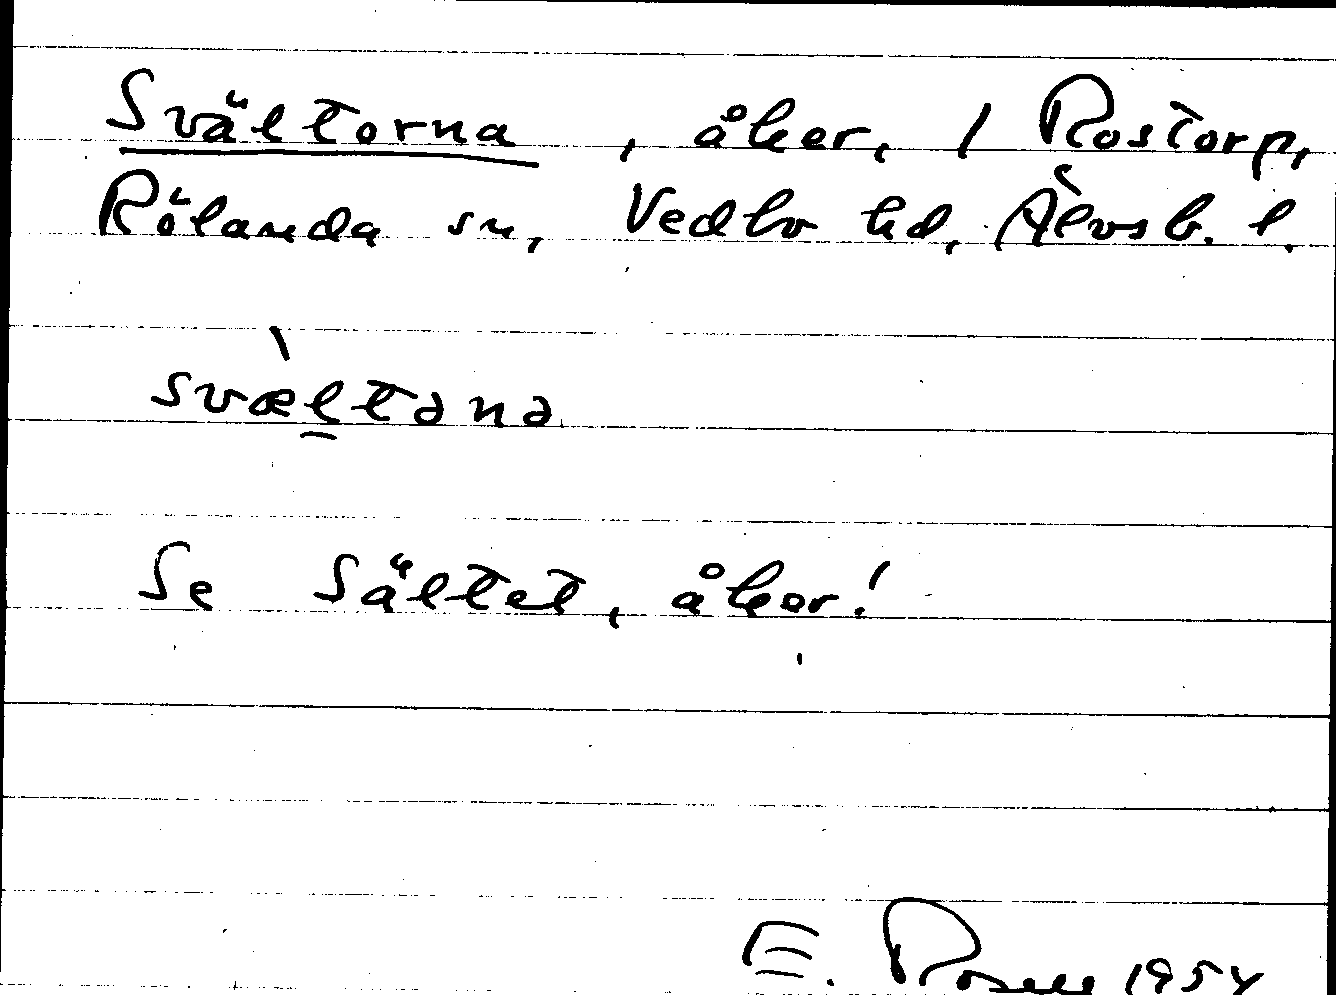 Svältorna, åker, / Rostorp,
Rölanda sn, Vedbo hd, Älvsb. l.
svæ̀l̠tənə
Se Sältet, åker!
E. Rosell 1954